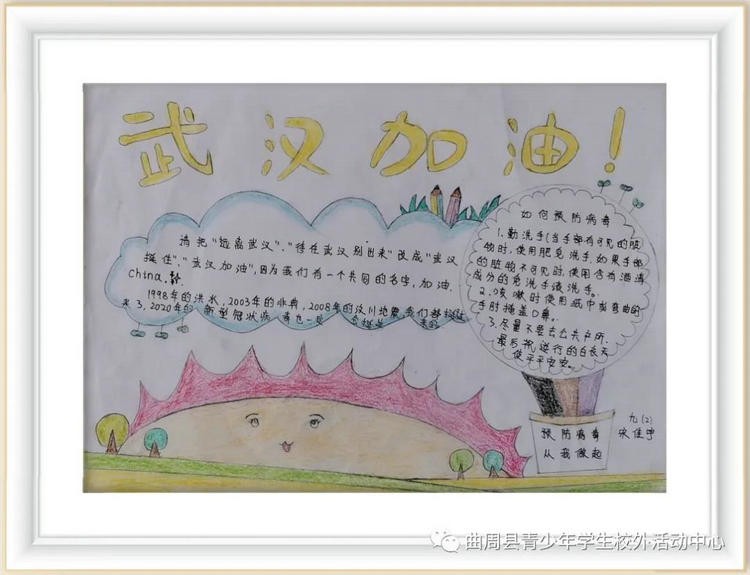 武汉加油!
请把"远离武汉"、"待在武汉别出来"改成"武汉
挺住"、"武汉加油",因为我们有一个共同的名字,加油.
China.
1998年的洪水,2003年的非典,2008年的汶川地震,我们都挺过
来了,2020年的新型冠状病毒也一
如何预防病毒
1.勤洗手(当手部有可见的脏
物时,使用肥皂洗手.如果手部
的脏物不可见时,使用含有酒精
成分的免洗手液洗手。
2.咳嗽时使用纸巾或弯曲的
手肘掩盖口鼻。
3.尽量不要去公共场所.
最后祝逆行的白衣天
使平平安安。
九(2)
宋佳宇
预防病毒
从我做起
曲周县青少年学生校外活动中心